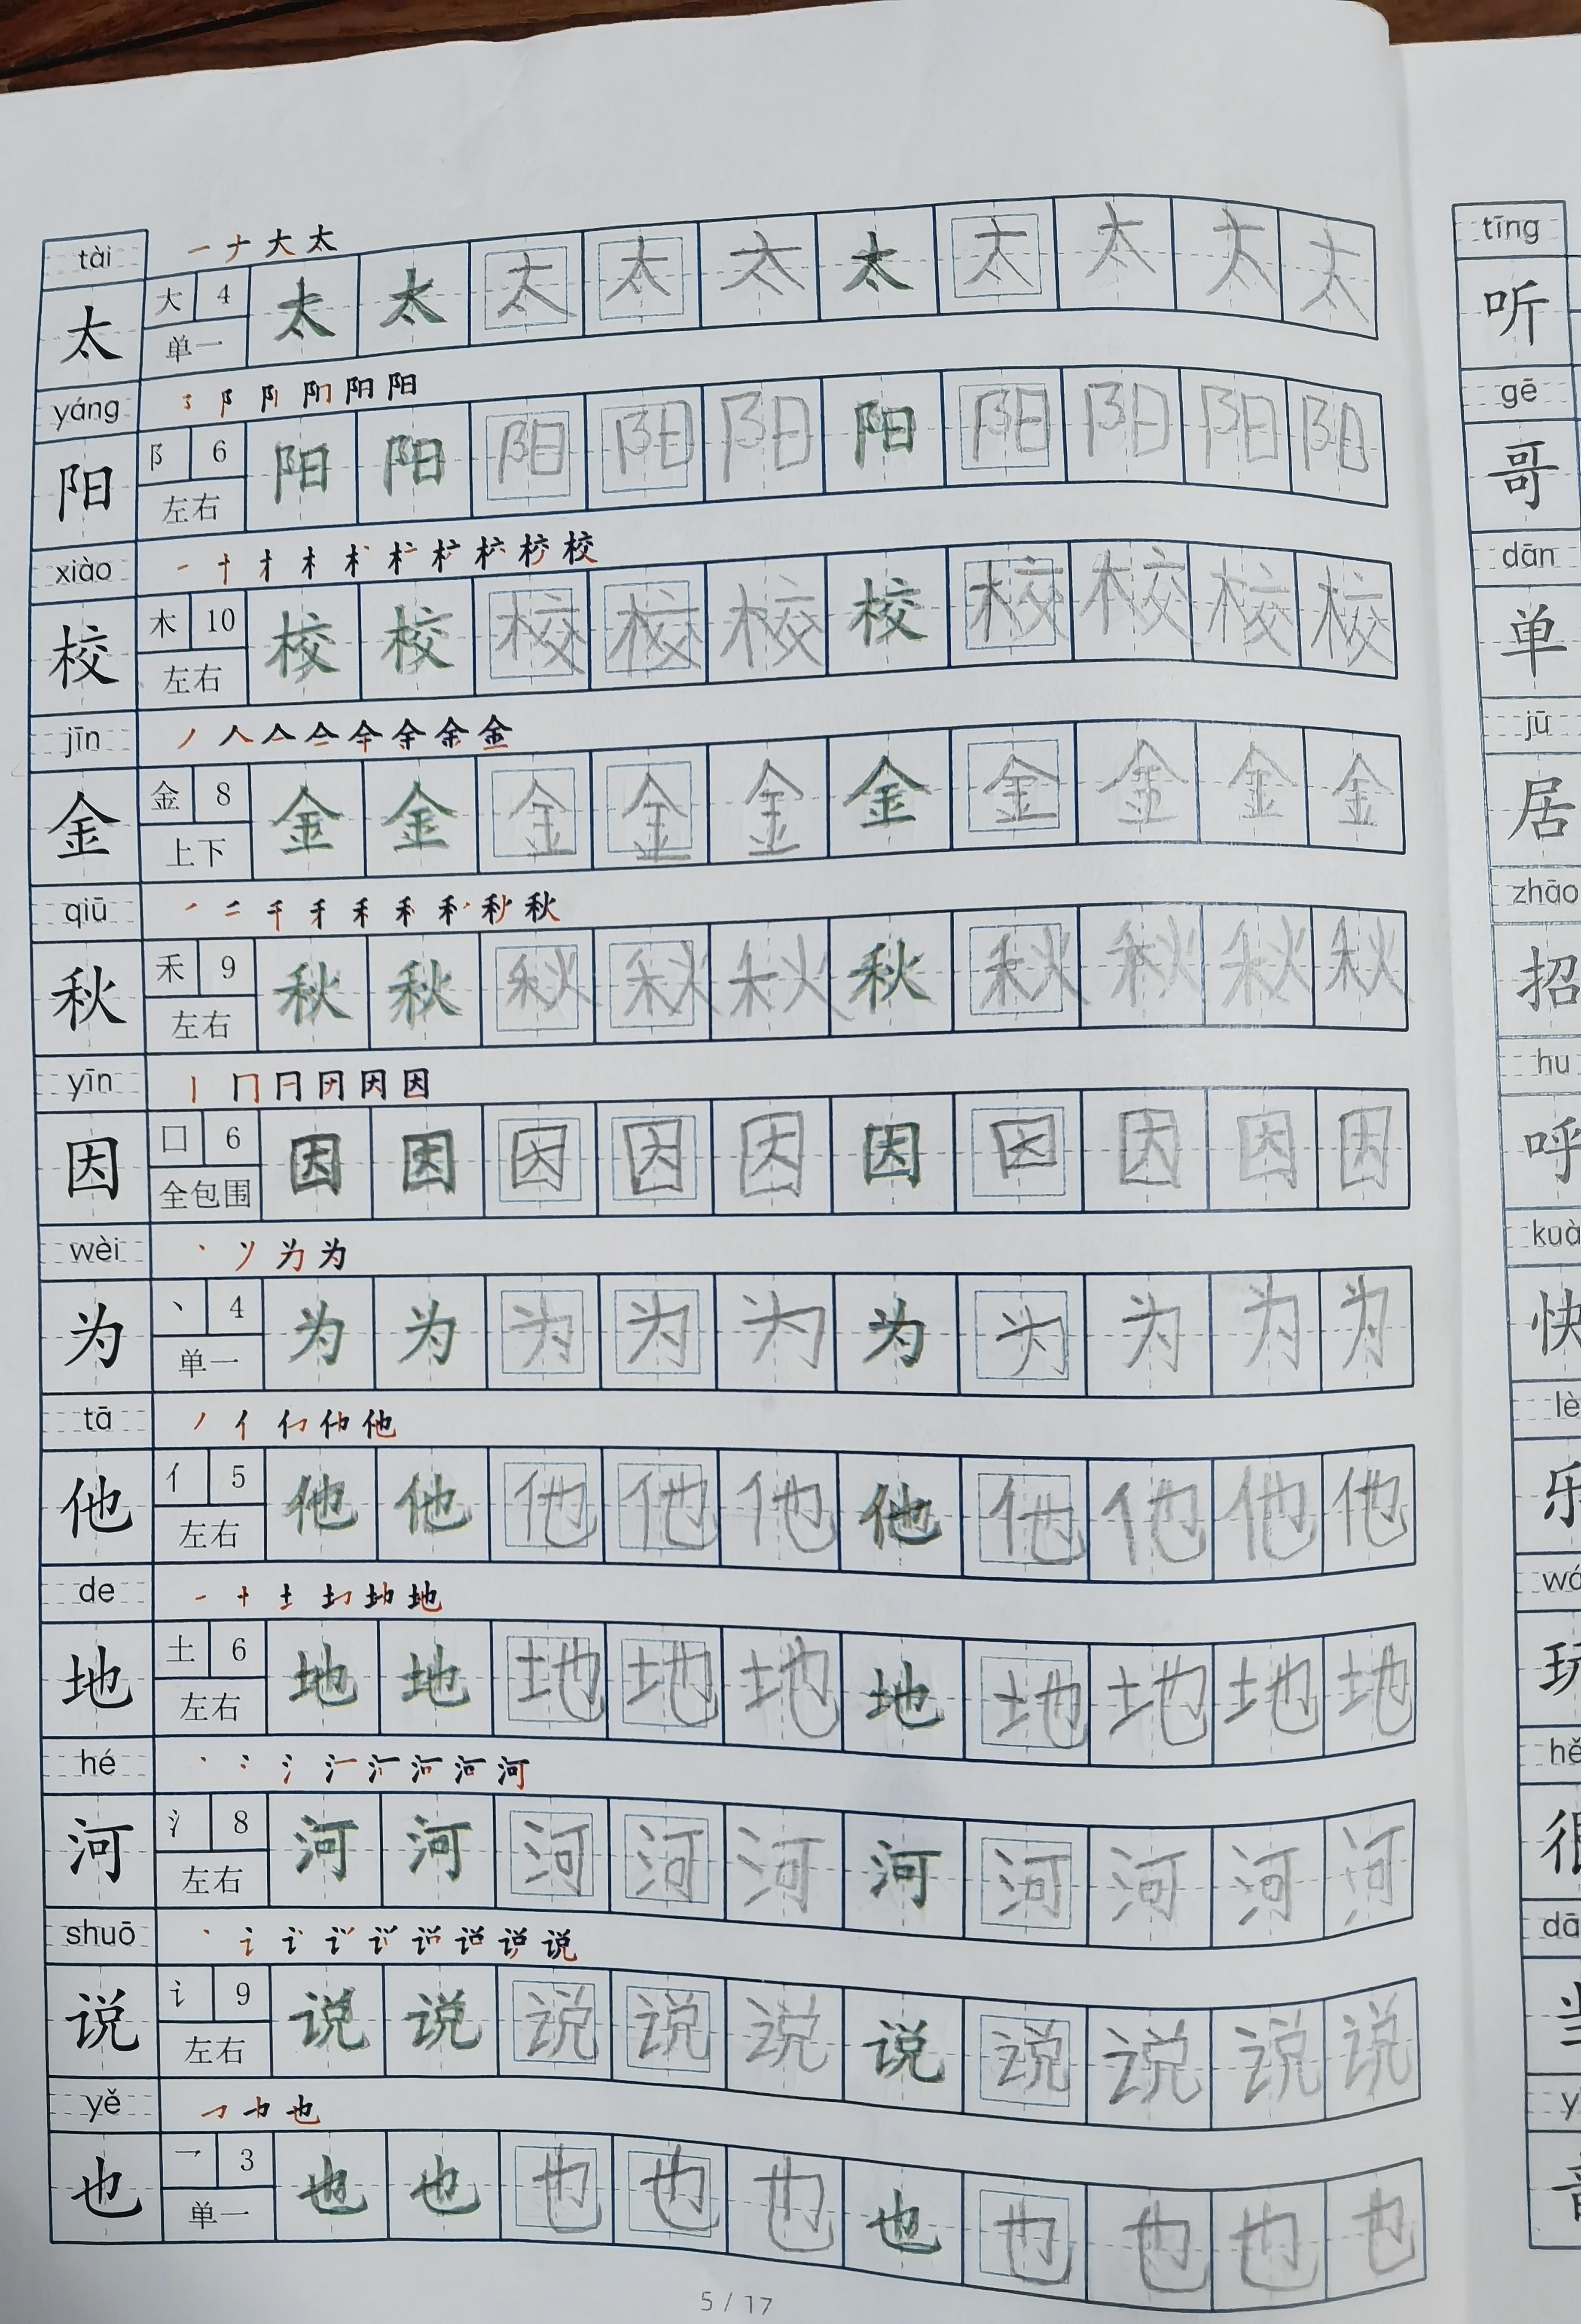 tài 一 ナ 大 太
太 大 4 单一 太 太 太 太 太 太 太 太 太 太
yáng 阝 阳 阳
阳 阝 6 左右 阳 阳 阳 阳 阳 阳 阳 阳 阳 阳
xiào 一 十 才 木 校
校 木 10 左右 校 校 校 校 校 校 校 校 校 校
jīn 丿 人 亼 仐 余 金
金 金 8 上下 金 金 金 金 金 金 金 金 金 金
qiū 一 二 千 禾 禾 秋
秋 禾 9 左右 秋 秋 秋 秋 秋 秋 秋 秋 秋 秋
yīn 丨 冂 冃 因 因
因 口 6 全包围 因 因 因 因 因 因 因 因 因 因
wèi 丶 丷 为 为
为 丶 4 单一 为 为 为 为 为 为 为 为 为 为
tā 丿 亻 他
他 亻 5 左右 他 他 他 他 他 他 他 他 他 他
de 一 十 土 地
地 土 6 左右 地 地 地 地 地 地 地 地 地 地
hé 丶 冫 氵 河
河 氵 8 左右 河 河 河 河 河 河 河 河 河 河
shuō 丶 讠 说
说 讠 9 左右 说 说 说 说 说 说 说 说 说 说
yě 也
也 乛 3 单一 也 也 也 也 也 也 也 也 也 也
5 / 17
tīng
听
gē
哥
dān
单
jū
居
zhāo
招
hu
呼
kuà
快
lè
乐
玩
hě
很
dā
当
y